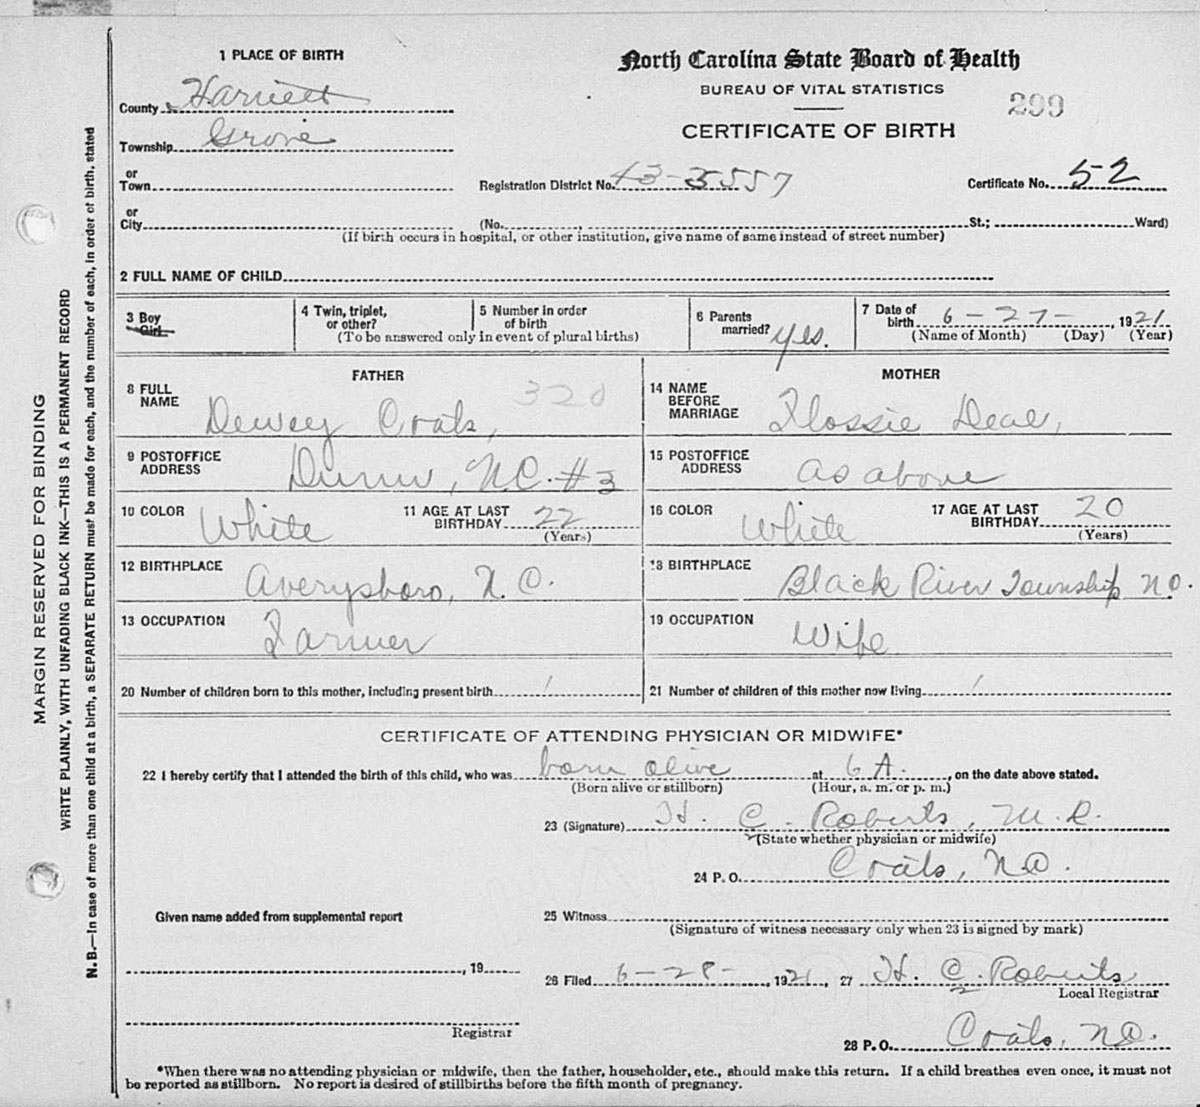 North Carolina State Board of Health
BUREAU OF VITAL STATISTICS
299
CERTIFICATE OF BIRTH
1 PLACE OF BIRTH
County Harnett
Township Grove
or
Town
Registration District No. 43-3557
Certificate No. 52
or
City
(No. St.; Ward)
(If birth occurs in hospital, or other institution, give name of same instead of street number)
2 FULL NAME OF CHILD
3 Boy
Girl
4 Twin, triplet,
or other?
5 Number in order
of birth
(To be answered only in event of plural births)
6 Parents
married? Yes.
7 Date of
birth 6-27-, 1921
(Name of Month) (Day) (Year)
FATHER
8 FULL
NAME
320
Dewey Coats,
9 POSTOFFICE
ADDRESS
Dunn, N.C. #3
10 COLOR White
11 AGE AT LAST
BIRTHDAY 22
(Years)
12 BIRTHPLACE Averysboro, N.C.
13 OCCUPATION Farmer
20 Number of children born to this mother, including present birth 1
MOTHER
14 NAME
BEFORE
MARRIAGE
Flossie Deal,
15 POSTOFFICE
ADDRESS
as above
16 COLOR White
17 AGE AT LAST
BIRTHDAY 20
(Years)
18 BIRTHPLACE Black River Township N.C.
19 OCCUPATION Wife
21 Number of children of this mother now living 1
CERTIFICATE OF ATTENDING PHYSICIAN OR MIDWIFE*
22 I hereby certify that I attended the birth of this child, who was born alive at 6 A., on the date above stated.
(Born alive or stillborn) (Hour, a. m. or p. m.)
23 (Signature) H. C. Roberts, M.R.
(State whether physician or midwife)
24 P. O. Coats, N.C.
Given name added from supplemental report
25 Witness
(Signature of witness necessary only when 23 is signed by mark)
, 19
26 Filed 6-28-, 1921, 27 H. C. Roberts
Local Registrar
Registrar
28 P. O. Coats, N.C.
*When there was no attending physician or midwife, then the father, householder, etc., should make this return. If a child breathes even once, it must not
be reported as stillborn. No report is desired of stillbirths before the fifth month of pregnancy.
MARGIN RESERVED FOR BINDING
WRITE PLAINLY, WITH UNFADING BLACK INK—THIS IS A PERMANENT RECORD
N. B.—In case of more than one child at a birth, a SEPARATE RETURN must be made for each, and the number of each, in order of birth, stated